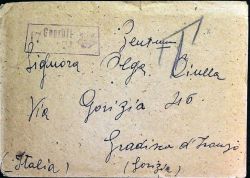 Geprüft
Signora Olga Ciulla
Via Gorizia 216
Gradisca d'Isonzo
(Italia) (Gorizia)